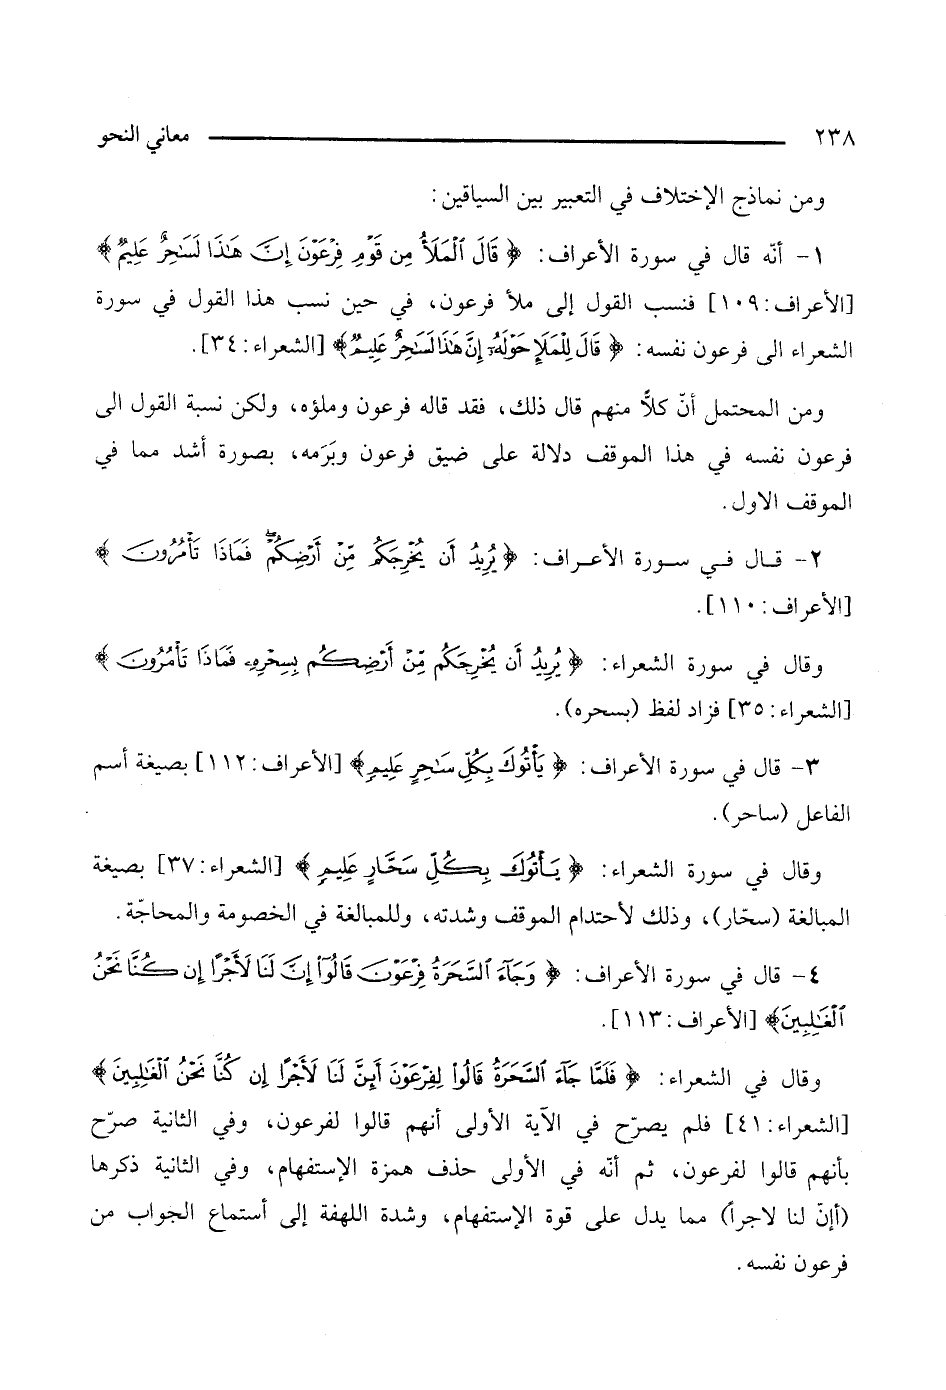 ٢٣٨ معاني النحو
ومن نماذج الإختلاف في التعبير بين السياقين:
١- أنّه قال في سورة الأعراف: ﴿ قَالَ ٱلْمَلَأُ مِن قَوْمِ فِرْعَوْنَ إِنَّ هَٰذَا لَسَٰحِرٌ عَلِيمٌ ﴾
[الأعراف:١٠٩] فنسب القول إلى ملأ فرعون، في حين نسب هذا القول في سورة
الشعراء الى فرعون نفسه: ﴿ قَالَ لِلْمَلَإِ حَوْلَهُۥٓ إِنَّ هَٰذَا لَسَٰحِرٌ عَلِيمٌ﴾ [الشعراء:٣٤].
ومن المحتمل أنّ كلاًّ منهم قال ذلك، فقد قاله فرعون وملؤه، ولكن نسبة القول الى
فرعون نفسه في هذا الموقف دلالة على ضيق فرعون وبَرَمه، بصورة أشد مما في
الموقف الاول.
٢- قـال فـي سـورة الأعـراف: ﴿ يُرِيدُ أَن يُخْرِجَكُم مِّنْ أَرْضِكُمْ ۖ فَمَاذَا تَأْمُرُونَ ﴾
[الأعراف:١١٠].
وقال في سورة الشعراء: ﴿ يُرِيدُ أَن يُخْرِجَكُم مِّنْ أَرْضِكُم بِسِحْرِهِۦ فَمَاذَا تَأْمُرُونَ ﴾
[الشعراء:٣٥] فزاد لفظ (بسحره).
٣- قال في سورة الأعراف: ﴿ يَأْتُوكَ بِكُلِّ سَٰحِرٍ عَلِيمٍ﴾ [الأعراف:١١٢] بصيغة أسم
الفاعل (ساحر).
وقال في سورة الشعراء: ﴿ يَأْتُوكَ بِكُلِّ سَحَّارٍ عَلِيمٍ ﴾ [الشعراء:٣٧] بصيغة
المبالغة (سحّار)، وذلك لأحتدام الموقف وشدته، وللمبالغة في الخصومة والمحاجّة.
٤- قال في سورة الأعراف: ﴿ وَجَآءَ ٱلسَّحَرَةُ فِرْعَوْنَ قَالُوٓا۟ إِنَّ لَنَا لَأَجْرًا إِن كُنَّا نَحْنُ
ٱلْغَٰلِبِينَ﴾ [الأعراف:١١٣].
وقال في الشعراء: ﴿ فَلَمَّا جَآءَ ٱلسَّحَرَةُ قَالُوا۟ لِفِرْعَوْنَ أَئِنَّ لَنَا لَأَجْرًا إِن كُنَّا نَحْنُ ٱلْغَٰلِبِينَ ﴾
[الشعراء:٤١] فلم يصرّح في الآية الأولى أنهم قالوا لفرعون، وفي الثانية صرّح
بأنهم قالوا لفرعون، ثم أنّه في الأولى حذف همزة الإستفهام، وفي الثانية ذكرها
(أإنّ لنا لاجراً) مما يدل على قوة الإستفهام، وشدة اللهفة إلى أستماع الجواب من
فرعون نفسه.